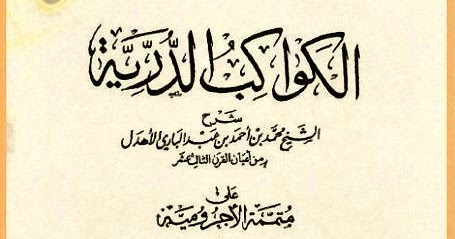 الكواكب الدرية
شرح
الشيخ محمد بن أحمد بن عبد الباري الأهدل
من أعيان القرن الثالث عشر
على
متممة الآجرومية